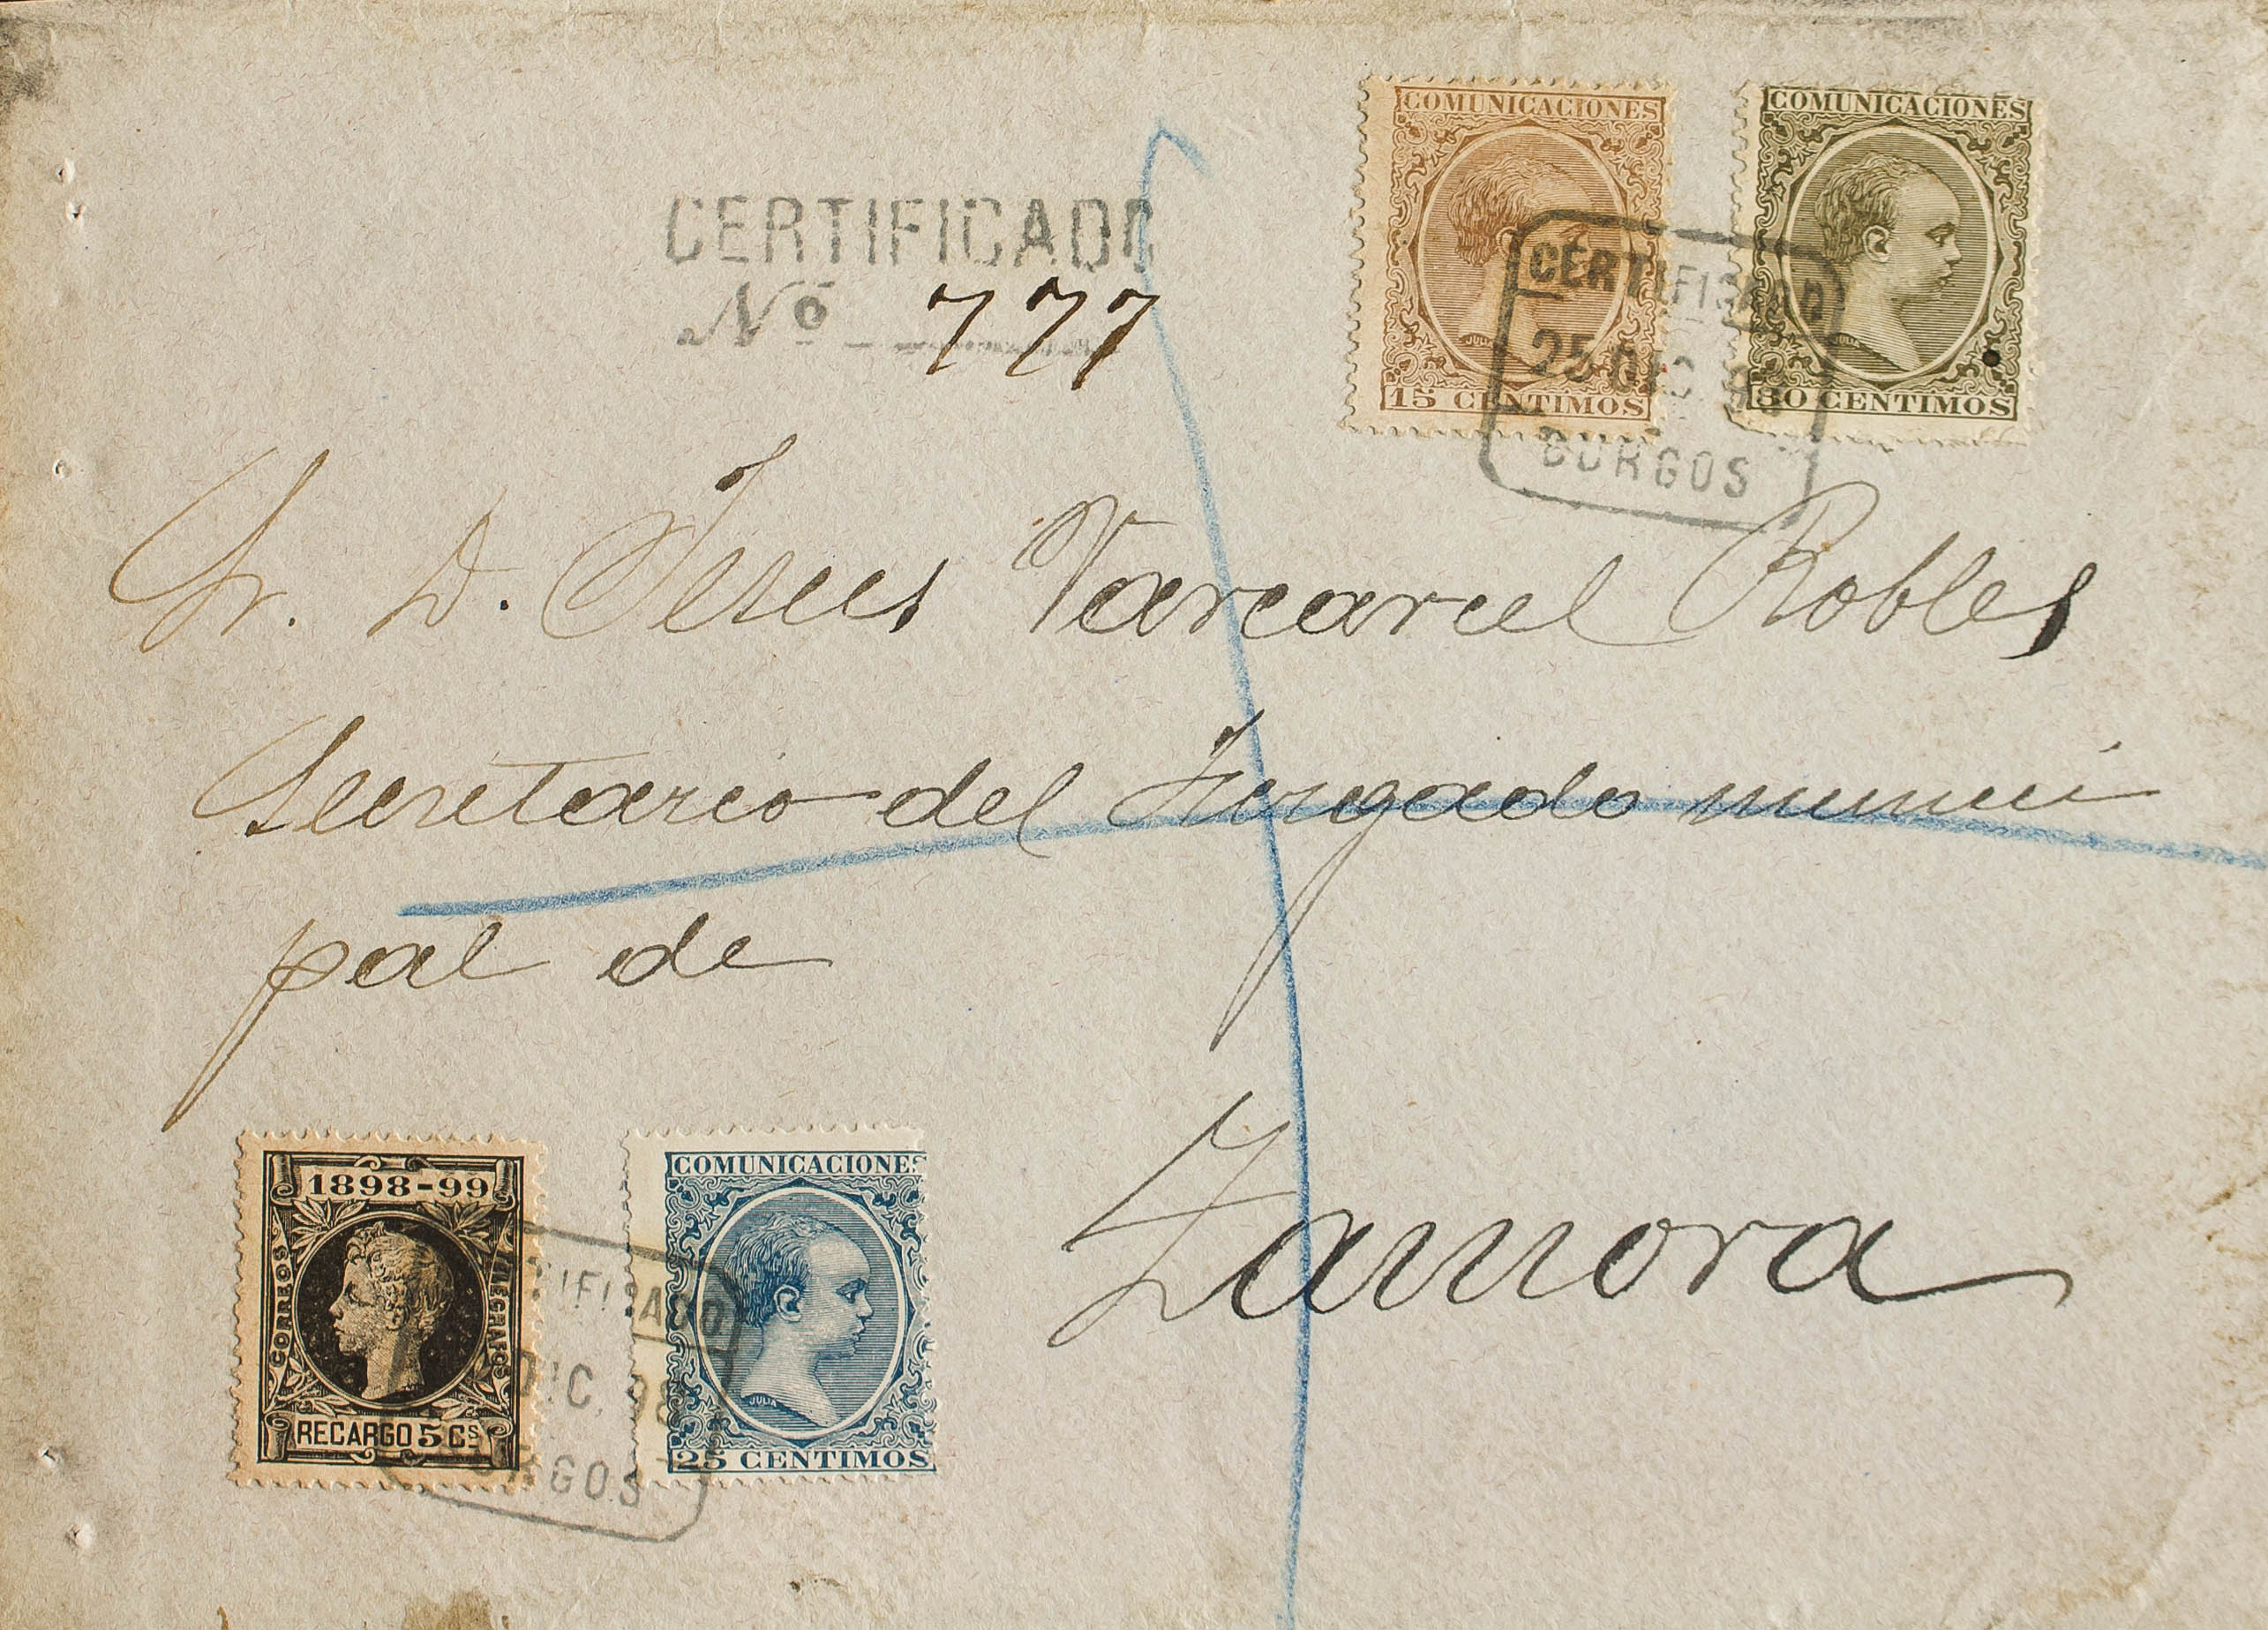 COMUNICACIONES
15 CENTIMOS
COMUNICACIONES
30 CENTIMOS
CERTIFICADO
Nº 777
CERTIFICADO
25 DIC 98
BURGOS
Sr. D. Jesus Varcarcel Robles
Secretario del Juzgado munici
pal de
Zamora
1898-99
CORREOS
TELEGRAFOS
RECARGO 5 Cs
COMUNICACIONES
JULIA
25 CENTIMOS
TIFICADO
DIC. 98
RGOS